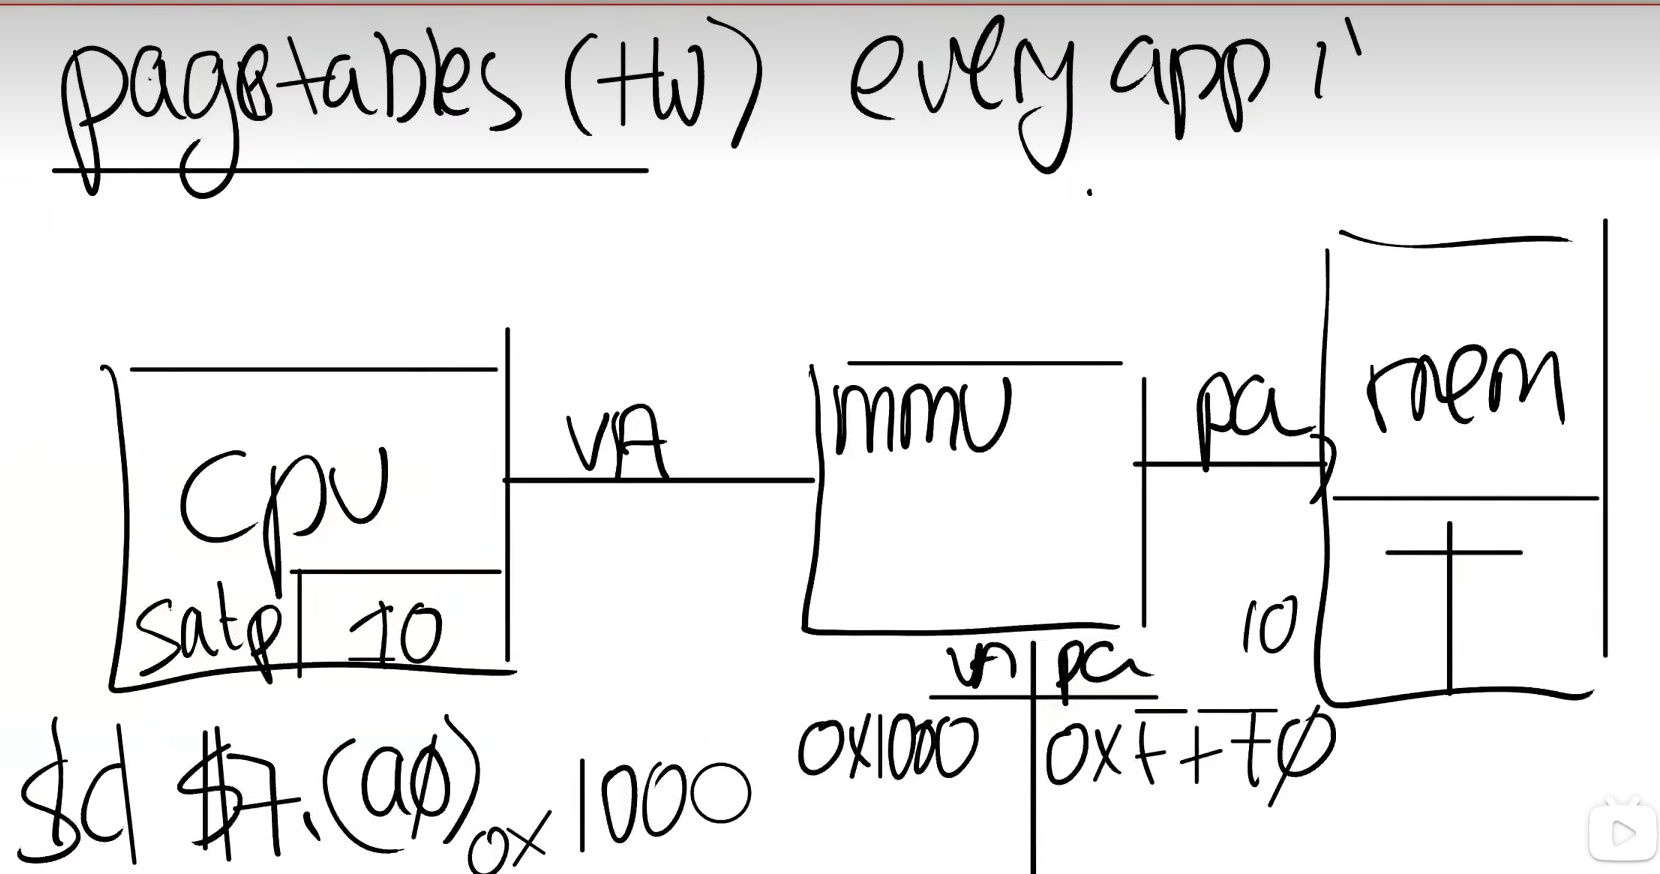 pagetables (HW) every app i
CPU
satp 10
VA
mmu
pa
mem
10
VA pa
0x1000 0xFFF0
sd $7, (a0)
0x1000